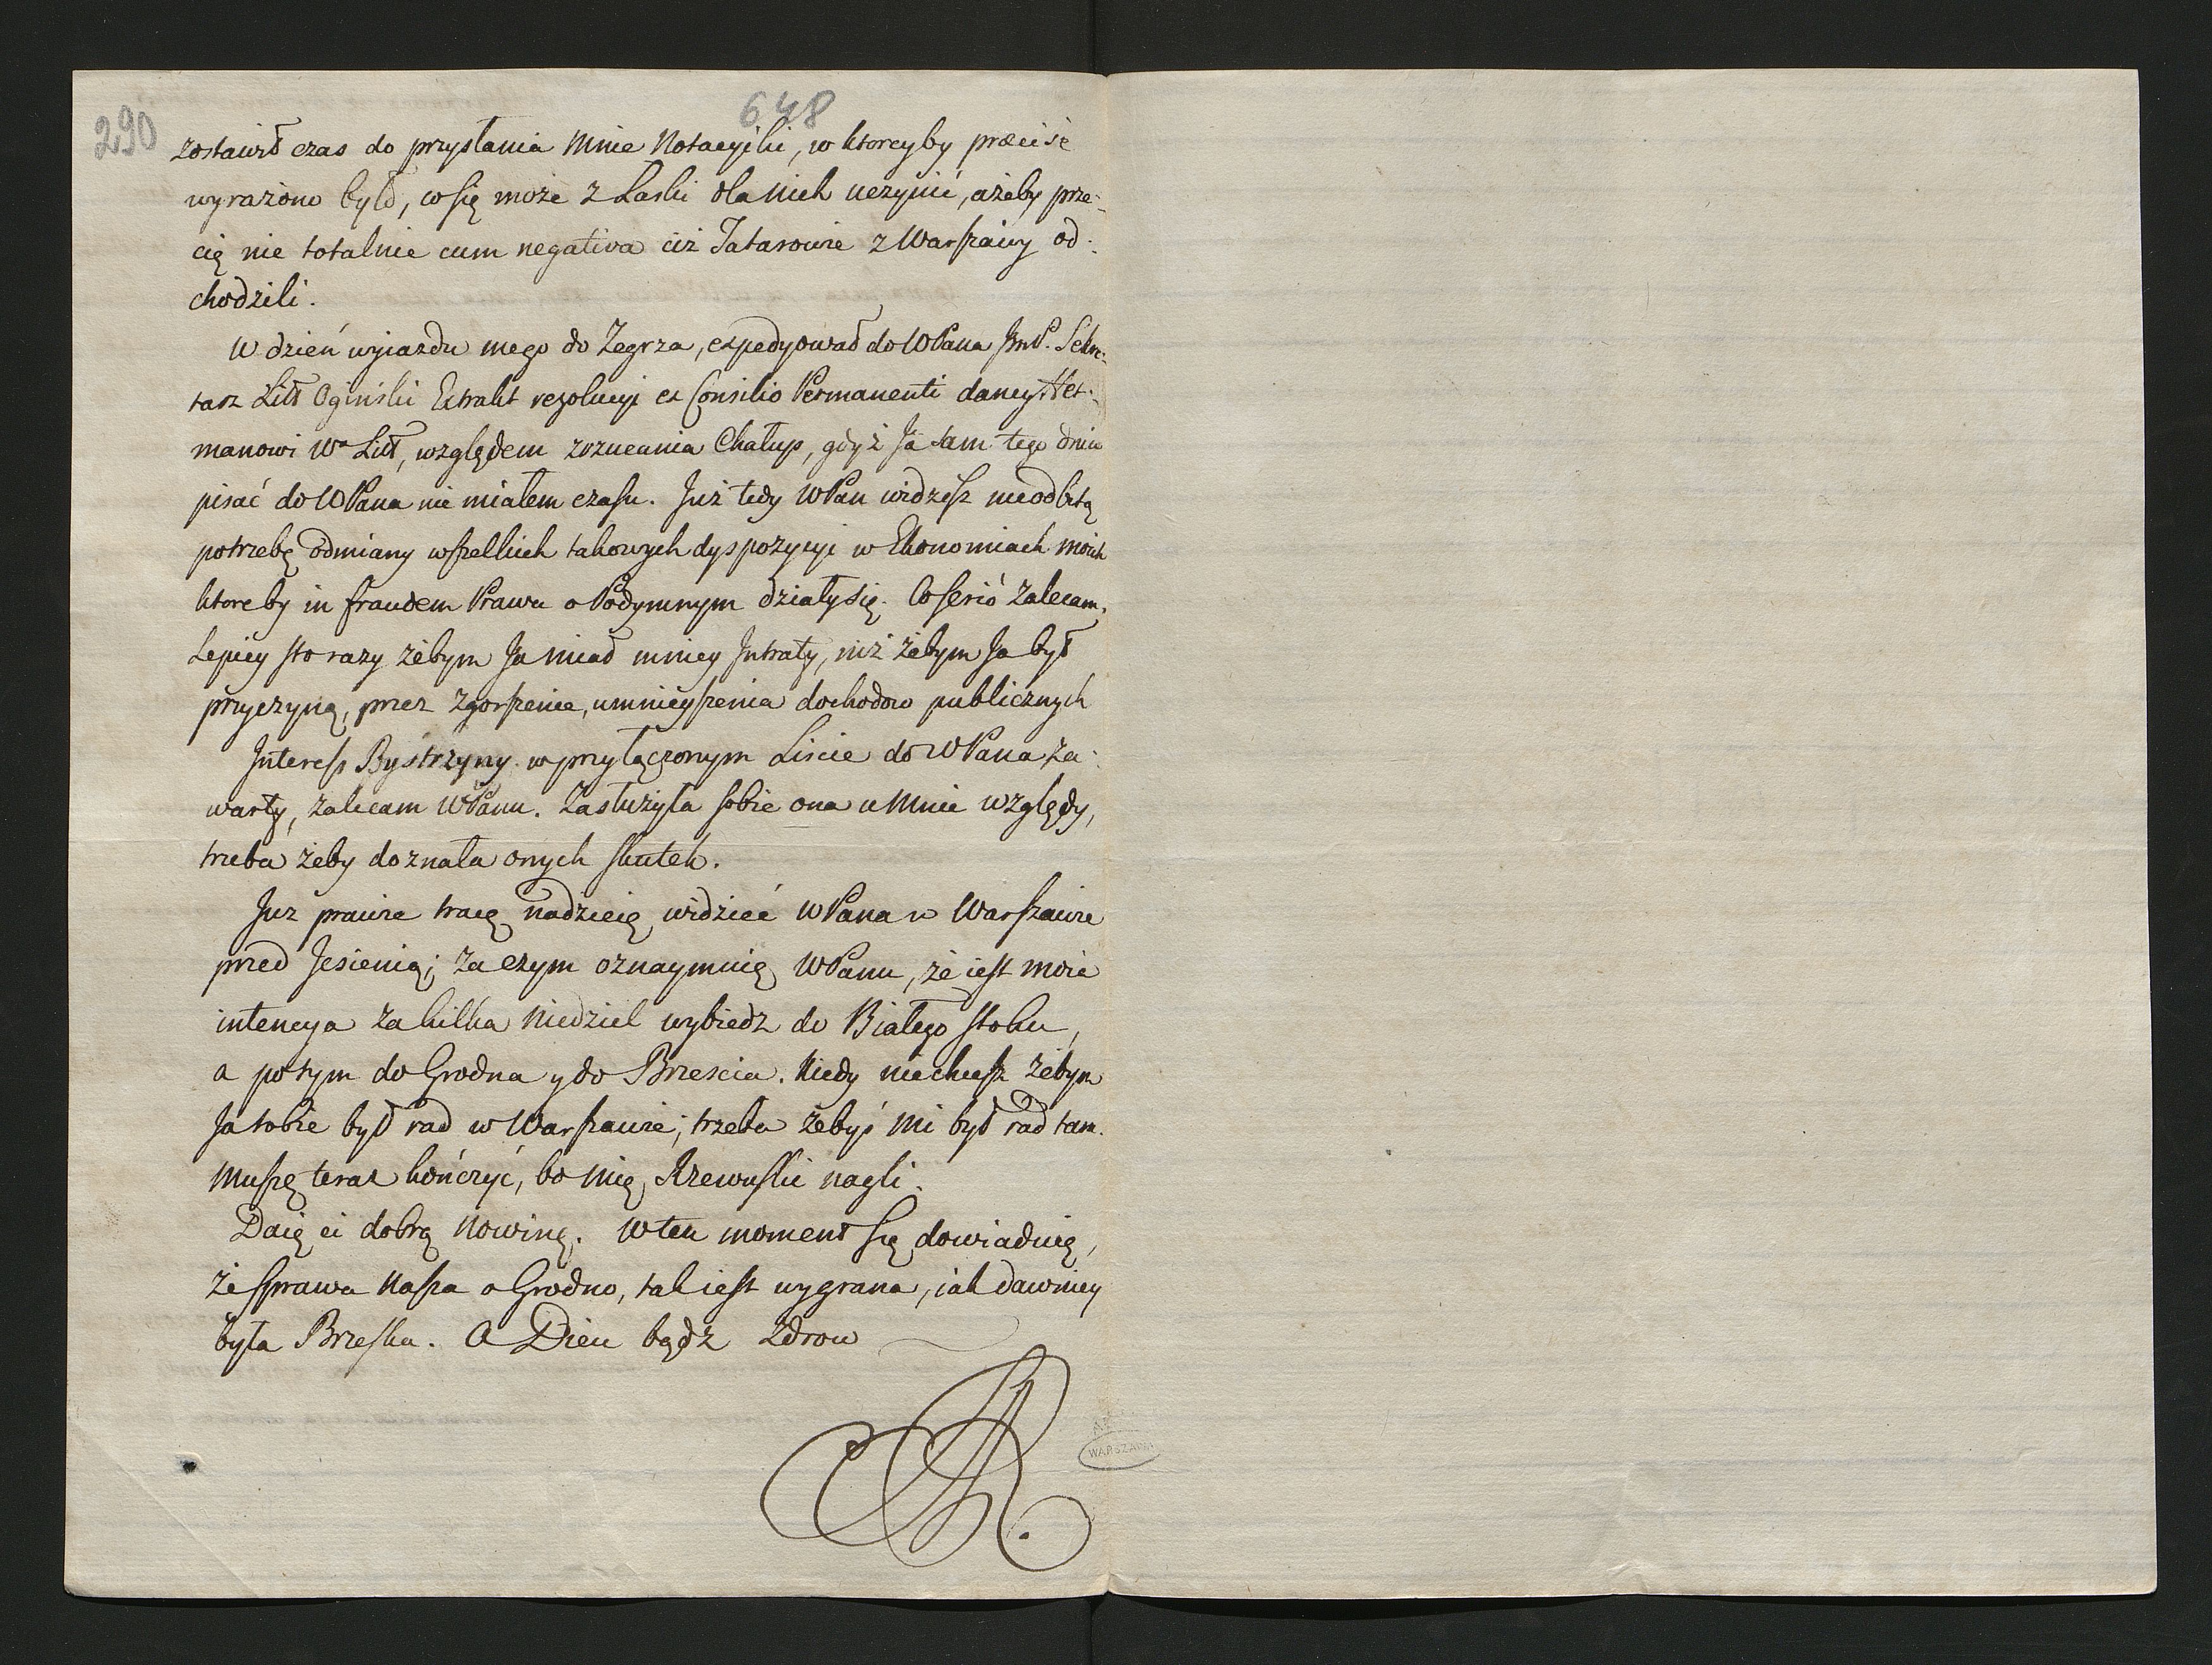 290
648
zostawił czas do przysłania Mnie Notacyiki, w ktoreyby præcise
wyrażono było, co się może z Łaski dla nich uczynić, ażeby prze-
cię nie totalnie cum negativa ciż Tatarowie z Warszawy od-
chodzili.
W dzień wyiazdu mego do Zegrza, expedyował do WPana JmP. Sekre-
tarz Litt Ogiński Extrakt rezolucyi ex Consilio Permanenti daney Het-
manowi Wo Litt, względem zrzucania Chałup, gdyż Ja sam tego dnia
pisać do WPana nie miałem czasu. Już tedy WPan widzisz nieodbitą
potrzebę odmiany wszelkich takowych dyspozycyi w Ekonomiach moich
ktore by in fraudem Prawa o Podymnym działy się. Co serio zalecam.
Lepiey sto razy żebym Ja miał mniey Intraty, niż żebym Ja był
przyczyną, przez zgorszenie, umnieyszenia dochodow publicznych
Interess Bystrzyny w przyłączonym Liscie do WPana za-
warty, zalecam WPanu. Zasłużyła sobie ona u Mnie względy,
trzeba żeby doznała onych skutek.
Juz prawie tracę nadzieię widzieć WPana w Warszawie
przed Jesienią; Za czym oznaymuię WPanu, że iest moia
intencya za kilka Niedziel wybiedz do Białego stoku,
a potym do Grodna y do Brzescia. Kiedy niechcesz żebym
Ja tobie był rad w Warszawie; trzeba żebyś mi był rad tam.
Muszę teraz kończyć, bo mię Rzewuski nagli.
Daię ci dobrą Nowinę. W ten moment się dowiaduię,
że sprawa Nasza o Grodno, tak iest wygrana, iak dawniey
była Brzeska. A Dieu bądź zdrow
SAR.
WARSZAWA